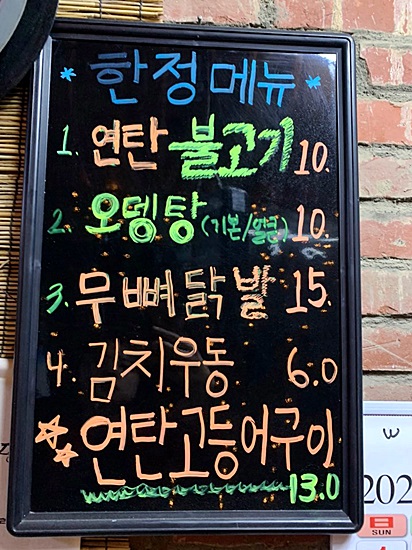 * 한정메뉴 *
1. 연탄 불고기 10.
2. 오뎅탕 (기본/얼큰) 10.
3. 무뼈닭발 15.
4. 김치우동 6.0
☆☆ 연탄고등어구이
13.0
202
日
SUN